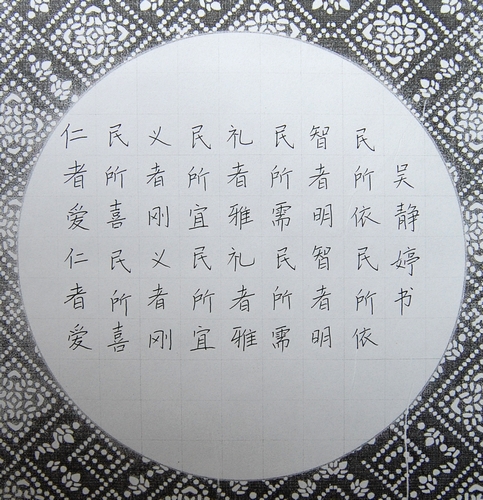 仁者爱仁者爱
民所喜民所喜
义者刚义者刚
民所宜民所宜
礼者雅礼者雅
民所需民所需
智者明智者明
民所依民所依
吴静婷书